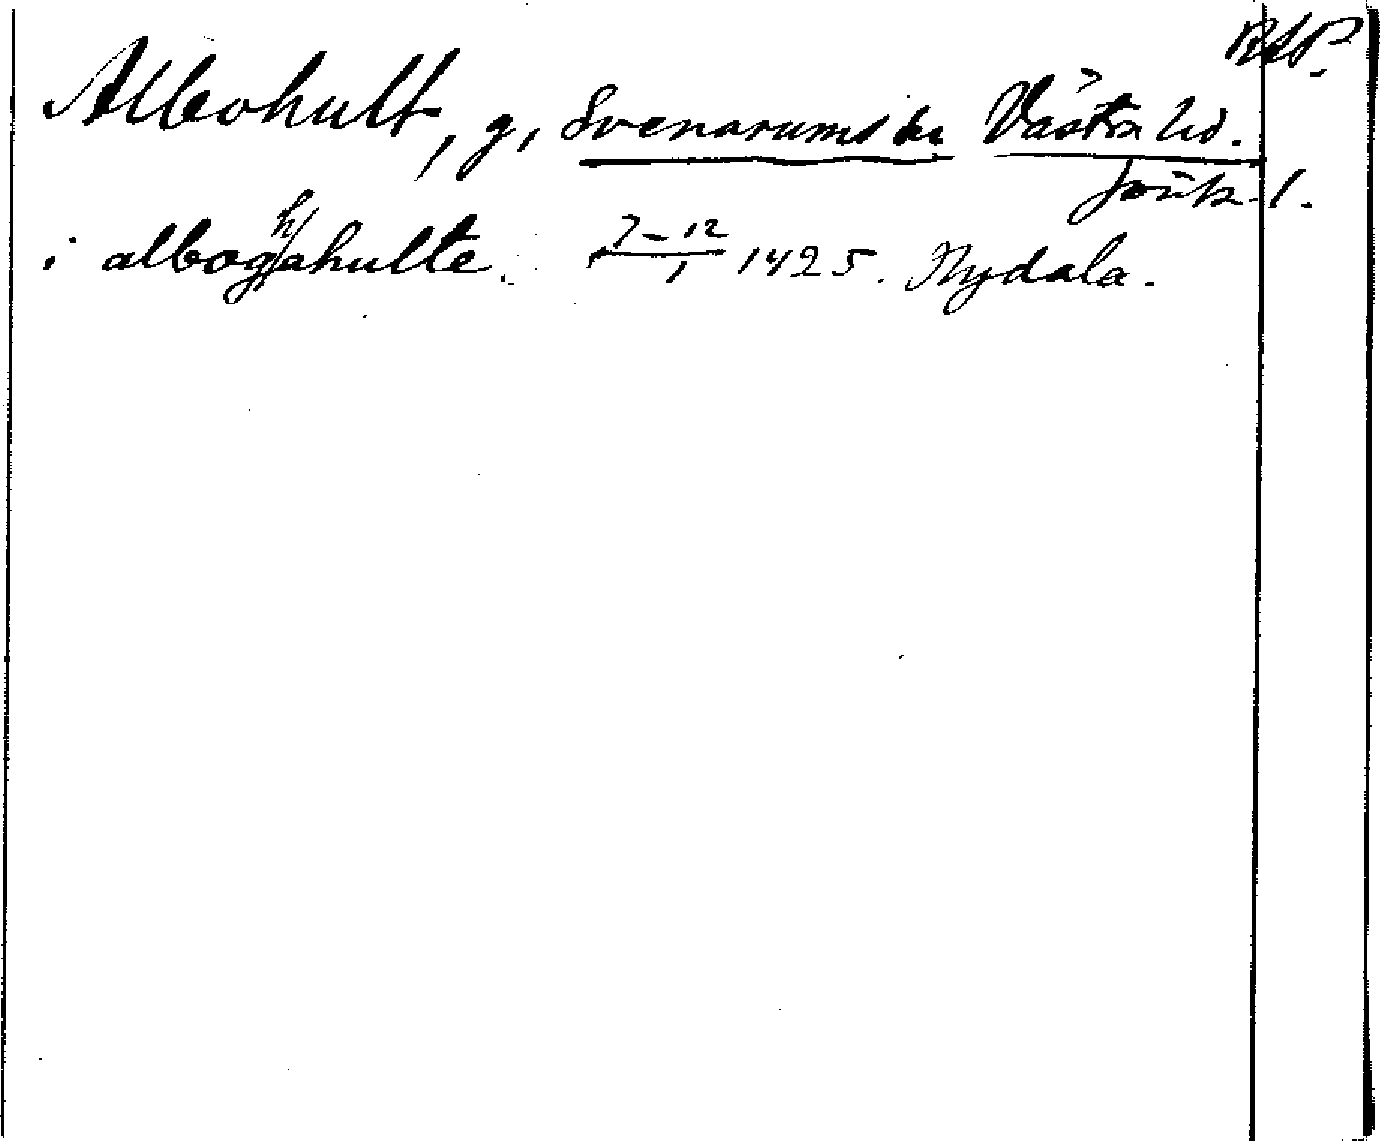 RAP.
Albohult, g, Svenarums sn Västra hd.
Jönk. l.
i alboghahulte. 7-12/1 1425. Nydala.